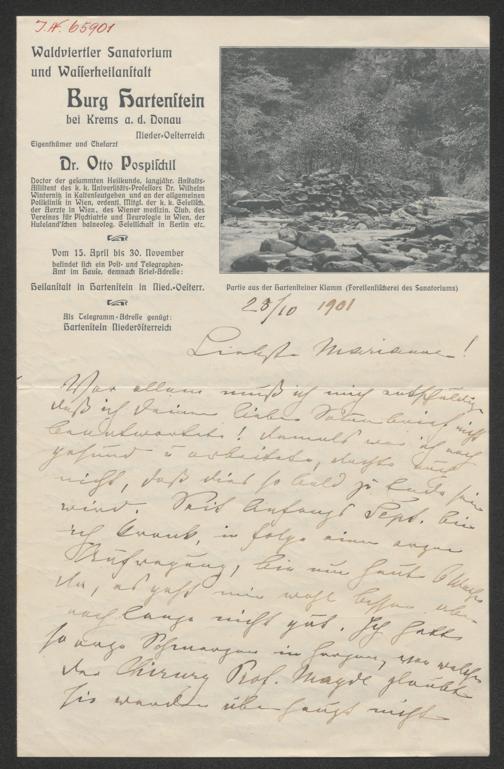 I.N. 65901
Waldviertler Sanatorium
und Wasserheilanstalt
Burg Hartenstein
bei Krems a. d. Donau
Nieder-Oesterreich
Eigenthümer und Chefarzt
Dr. Otto Pospischil
Doctor der gesammten Heilkunde, langjähr. Anstalts-
Assistent des k. k. Universitäts-Professors Dr. Wilhelm
Winternitz in Kaltenleutgeben und an der allgemeinen
Poliklinik in Wien, ordentl. Mitgl. der k. k. Gesellsch.
der Aerzte in Wien, des Wiener medizin. Club, des
Vereines für Psychiatrie und Neurologie in Wien, der
Hufeland'schen balneolog. Gesellschaft in Berlin etc.
Vom 15. April bis 30. November
befindet sich ein Post- und Telegraphen-
Amt im Hause, demnach Brief-Adresse:
Heilanstalt in Hartenstein in Nied.-Oesterr.
Als Telegramm-Adresse genügt:
Hartenstein Niederösterreich
Partie aus der Hartensteiner Klamm (Forellenfischerei des Sanatoriums)
23/10 1901
Liebste Marianne!
Vor allem muß ich mich entschuldigen
daß ich Deinen lieben nicht
beantwortete! Damals war ich noch
gesund u arbeitete, dachte auch
nicht, daß dies so bald zu Ende sein
wird. Seit Anfangs Sept. bin
ich krank, in folge einer argen
Aufregung, bin nun heute 6 Wochen
da, es geht mir wohl besser aber
noch lange nicht gut. Ich hatte
so arge Schmerzen in, von welchen
der Chirurg Prof. glaubte
sie werden überhaupt nicht